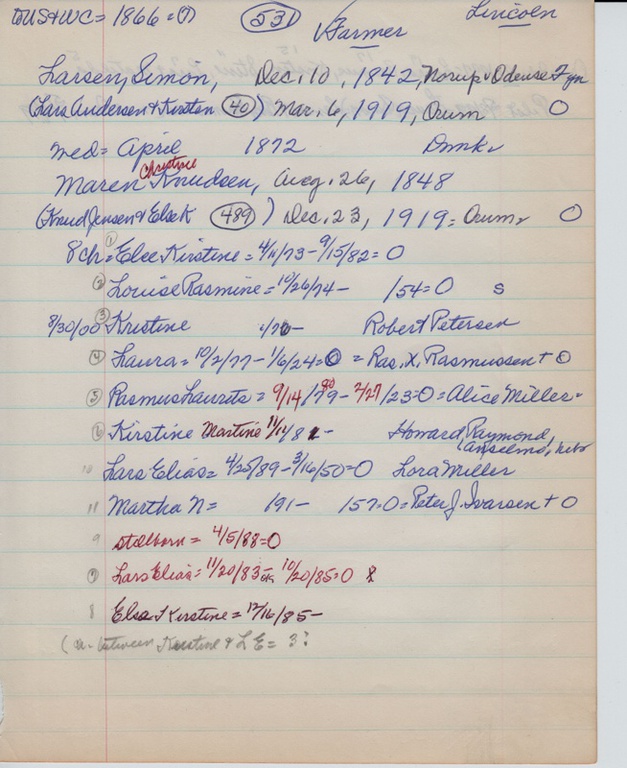 to US & WC = 1866 = (7) 531 Farmer Lincoln
Larsen, Simon, Dec. 10, 1842, Norup v Odense Fyn
(Lars Andersen & Kirsten 40) Mar. 6, 1919, Orum O
med = April 1872 Dmk.
Christine
Maren Knudsen, Aug. 26, 1848
(Knud Jensen & Else K 489) Dec. 23, 1919 = Orum O
8 ch = (1) Elee Kirstine = 4/11/73 - 9/15/82 = O
(2) Louise Rasmine = 10/26/74 - /54 = O s
8/30/00 (3) Kristine /76 - Robert Petersen
(4) Laura = 10/2/77 - 1/6/24 = O = Ras. X. Rasmussen + O
(5) Rasmus Laurets = 9/14/79 80 - 2/27/23 = O = Alice Miller -
(6) Kirstine Martine 11/14/81 - Howard Raymond,
Anselmo, Nebr
10 Lars Elias = 4/25/89 - 3/16/50 = O Lora Miller
11 Martha N = /91 - /57 = O = Peter J. Ivarsen + O
9 stelborn = 4/5/88 = O
(7) Lars Elias = 11/20/83 - 10/20/85 = O
8 Elsa Kirstine = 12/16/85 -
( between Kirstine & L E = 3?